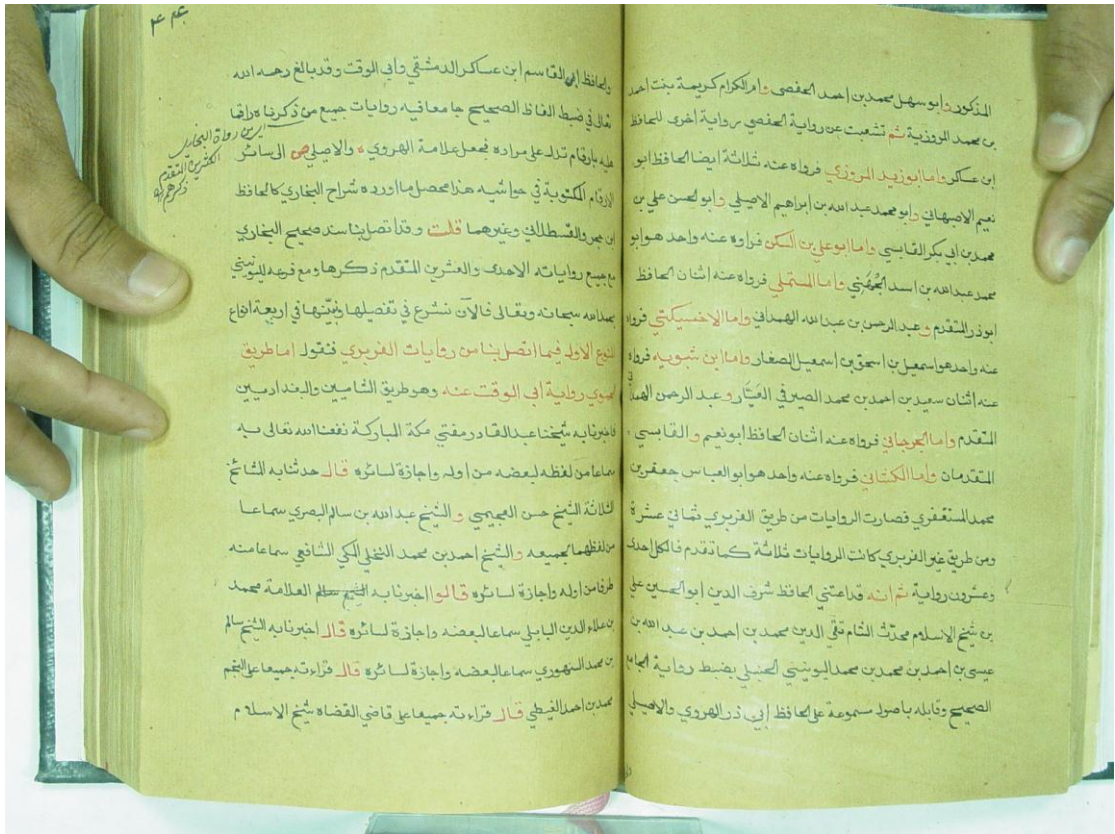 المذكور وابو سهل محمد بن احمد الحفصى وام الكرام كريمة بنت احمد
بن محمد المروزية ثم تشعبت عن رواية الحفصي برواية اخرى للحافظ
ابن عساكر واما ابو زيد المروزي فرواه عنه ثلاثة ايضا الحافظ ابو
نعيم الاصبهاني وابو محمد عبد الله بن ابراهيم الاصيلي وابو الحسن علي بن
محمد بن ابي بكر القابسي واما ابو علي بن السكن فراوه عنه واحد هو ابو
محمد عبد الله بن اسد الجُهَني واما المستملي فرواه عنه اثنان الحافظ
ابو ذر المتقدم وعبد الرحمن بن عبد الله الهمداني واما الاخسيكتي فرواه
عنه واحد هو اسمعيل بن اسحق بن اسمعيل الصفار واما ابن شبويه فرواه
عنه اثنان سعيد بن احمد بن محمد الصيرفي العَيَّار وعبد الرحمن الهمداني
المتقدم واما الجرجاني فرواه عنه اثنان الحافظ ابو نعيم والقابسي
المتقدمان واما الكشاني فرواه عنه واحد هو ابو العباس جعفر بن
محمد المستغفري فصارت الروايات من طريق الفربري ثماني عشرة
ومن طريق غير الفربري كانت الروايات ثلاثة كما تقدم فالكل احدى
وعشرون رواية ثم انه قد اعتنى الحافظ شرف الدين ابو الحسين علي
بن شيخ الاسلام محدّث الشام تقي الدين محمد بن احمد بن عبد الله بن
عيسى بن احمد بن محمد بن محمد اليونيني الحنبلي بضبط رواية الجامع
الصحيح وقابله باصول مسموعة على الحافظ ابي ذر الهروي والاصيلي
والحافظ ابي القاسم ابن عساكر الدمشقي وابي الوقت وقد بالغ رحمه الله
تعالى في ضبط الفاظ الصحيح جامعا فيه روايات جميع من ذكرناه راقما
عليه بارقام تدل على مراده فجعل علامة الهروي ه والاصيلي ص الى سائر
الارقام المكتوبة في حواشيه هذا محصل ما اورده شراح البخاري كالحافظ
ابن حجر والقسطلاني وغيرهما قلت وقد اتصل بنا سند صحيح البخاري
مع جميع رواياته الاحدى والعشرين المتقدم ذكرها ومع فرعه لليونيني
بحمد الله سبحانه وتعالى فالآن نشرع في تفصيلها ونبيّنها في اربعة انواع
النوع الاول فيما اتصل بنا من روايات الفربري فنقول اما طريق
الحموي رواية ابي الوقت عنه وهو طريق الشاميين والبغداديين
فاخبرنا به شيخنا عبد القادر مفتي مكة المباركة نفعنا الله تعالى به
سماعا من لفظه لبعضه من اوله واجازة لسائره قال حدثنا به المشائخ
الثلاثة الشيخ حسن العجيمي والشيخ عبد الله بن سالم البصري سماعا
من لفظهما لجميعه والشيخ احمد بن محمد النخلي المكي الشافعي سماعا منه
طرفا من اوله واجازة لسائره قالوا اخبرنا به العلامة محمد
بن علاء الدين البابلي سماعا لبعضه واجازة لسائره قال اخبرنا به الشيخ سالم
بن محمد السنهوري سماعا لبعضه واجازة لسائره قال قراءته جميعا على النجم
محمد بن احمد الغيطي قال قراءته جميعا على قاضي القضاة شيخ الاسلام
رواة البخاري
المتقدم
ذكرهم